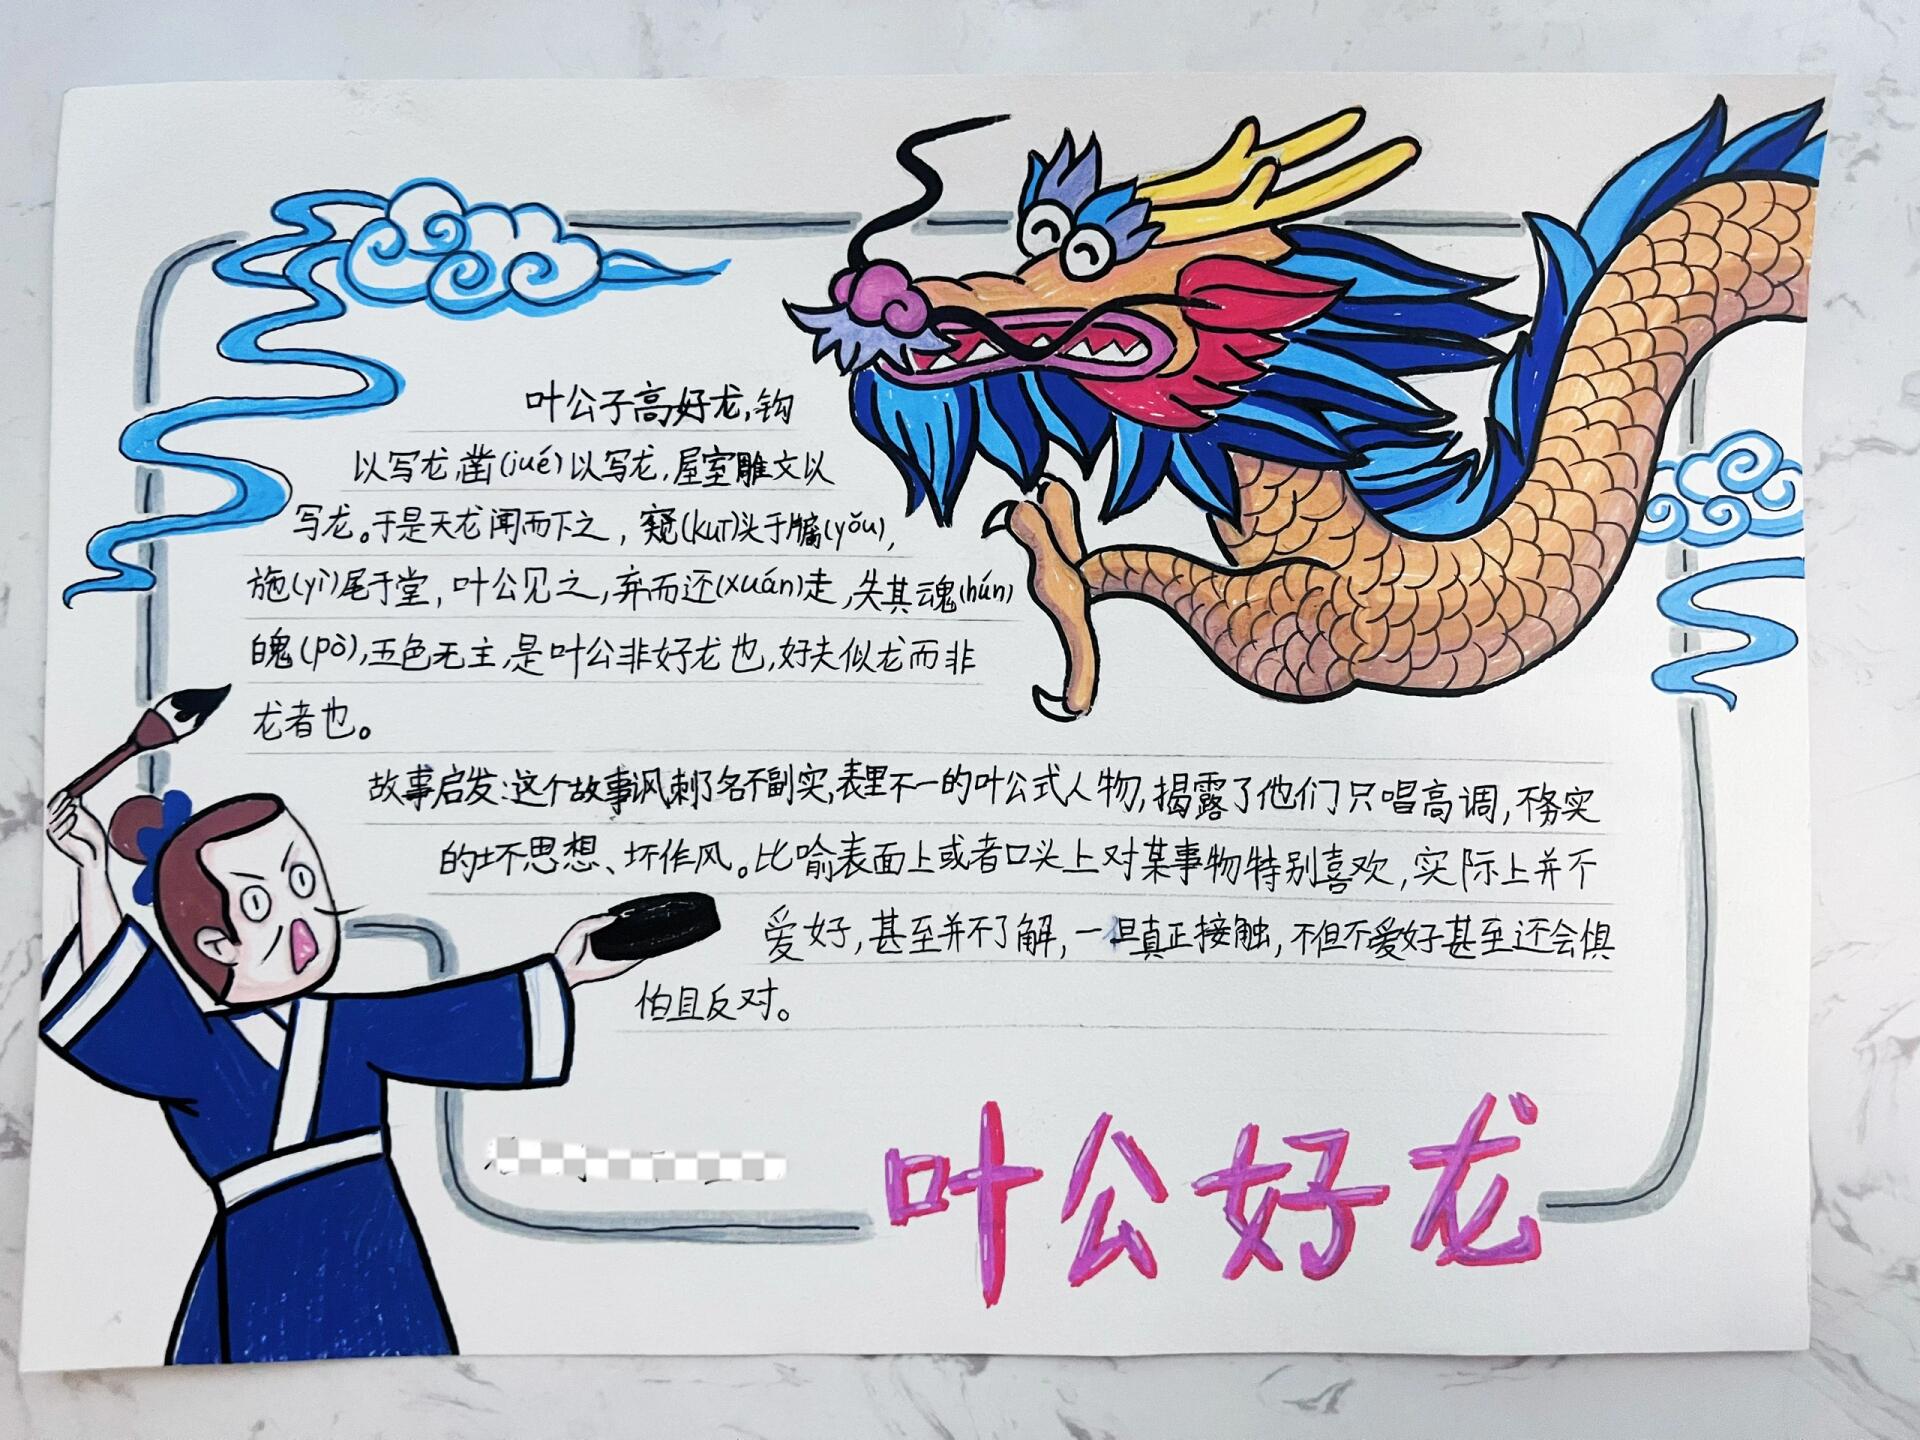 叶公子高好龙,钩
以写龙,凿(jué)以写龙,屋室雕文以
写龙。于是天龙闻而下之,窥(kuī)头于牖(yǒu),
施(yì)尾于堂,叶公见之,弃而还(xuán)走,失其魂(hún)
魄(pò),五色无主,是叶公非好龙也,好夫似龙而非
龙者也。
故事启发:这个故事讽刺了名不副实,表里不一的叶公式人物,揭露了他们只唱高调,不务实
的坏思想、坏作风。比喻表面上或者口头上对某事物特别喜欢,实际上并不
爱好,甚至并不了解,一旦真正接触,不但不爱好甚至还会惧
怕且反对。
叶公好龙